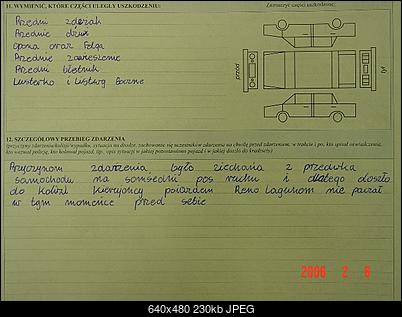 11. WYMIENIĆ, KTÓRE CZĘŚCI ULEGŁY USZKODZENIU:
Zaznaczyć części uszkodzone:
Przedni zderzak
Przednie drzwi
Opona oraz felga
Przednie zawieszenie
Przedni błotnik
Lusterko i Listwy Boczne
przód
tył
12. SZCZEGÓŁOWY PRZEBIEG ZDARZENIA
(przyczyny zdarzenia/kolizji/wypadku, sytuacja na drodze, zachowanie się uczestników zdarzenia na chwilę przed zdarzeniem, w trakcie i po, kto spisał oświadczenia,
kto wezwał policję, kto holował pojazd, itp., opis sytuacji w jakiej pozostawiono pojazd i w jakiej doszło do kradzieży)
Przyczynom zdarzenia było ziechania z przeciwka
samochodu na somsedni pos ruchu i dlatego doszło
do kolizi. Kierujoncy pojazdem Reno Lagunom nie patrzał
w tym momence przed siebie
2006 2 6
640x480 230kb JPEG